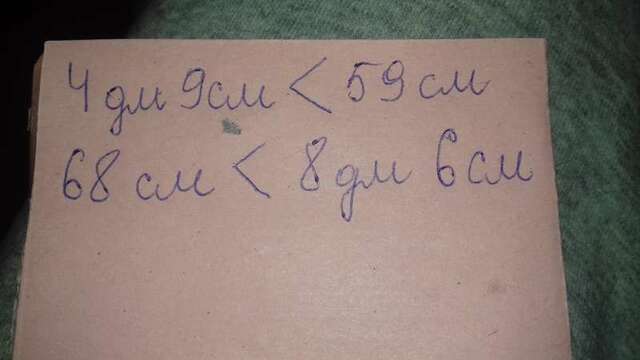 4 дм 9 см < 59 см
68 см < 8 дм 6 см